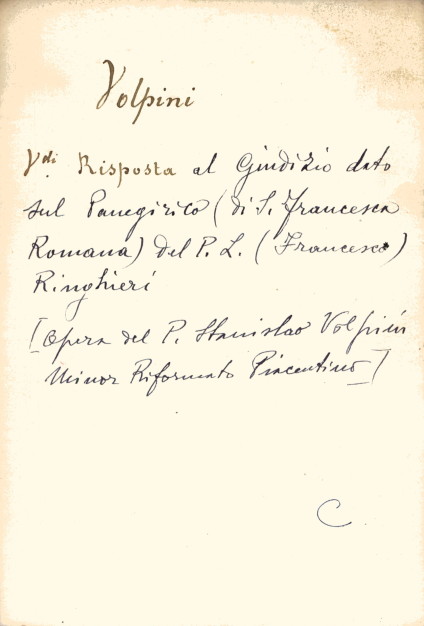 Volpini
Vdi Risposta al Giudizio dato
sul Panegirico (di S. Francesca
Romana) del P. L. (Francesco)
Ringhieri
[Opera del P. Stanislao Volpini
Minor Riformato Piacentino]
C